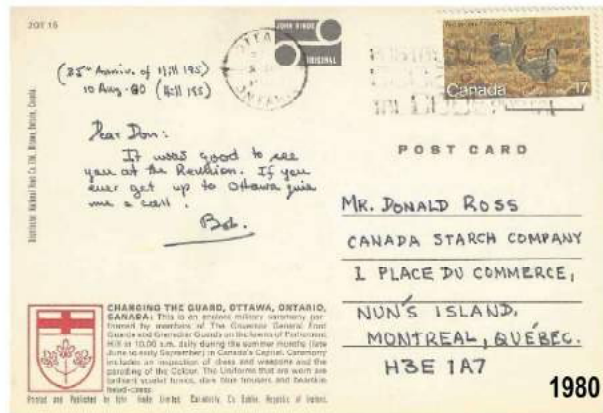 2OT 15
JOHN HINDE
ORIGINAL
OTTAWA
ONTARIO
Canada 17
(35th Anniv. of Hill 195)
10 Aug. 80 (Hill 195)
Dear Don:
It was good to see
you at the Reunion. If you
ever get up to Ottawa give
me a call.
Bob.
POST CARD
MR. DONALD ROSS
CANADA STARCH COMPANY
1 PLACE DU COMMERCE,
NUN'S ISLAND.
MONTREAL, QUÉBEC.
H3E 1A7
CHANGING THE GUARD, OTTAWA, ONTARIO,
CANADA: This is an ancient military ceremony per-
formed by members of The Governor General Foot
Guards and Grenadier Guards on the lawns of Parliament
Hill at 10.00 a.m. daily during the summer months (late
June to early September) in Canada's Capital. Ceremony
includes an inspection of dress and weapons and the
parading of the Colour. The Uniforms that are worn are
brilliant scarlet tunics, dark blue trousers and bearskin
head-dress.
Printed and Published by John Hinde Limited, Cabinteely, Co Dublin, Republic of Ireland.
1980